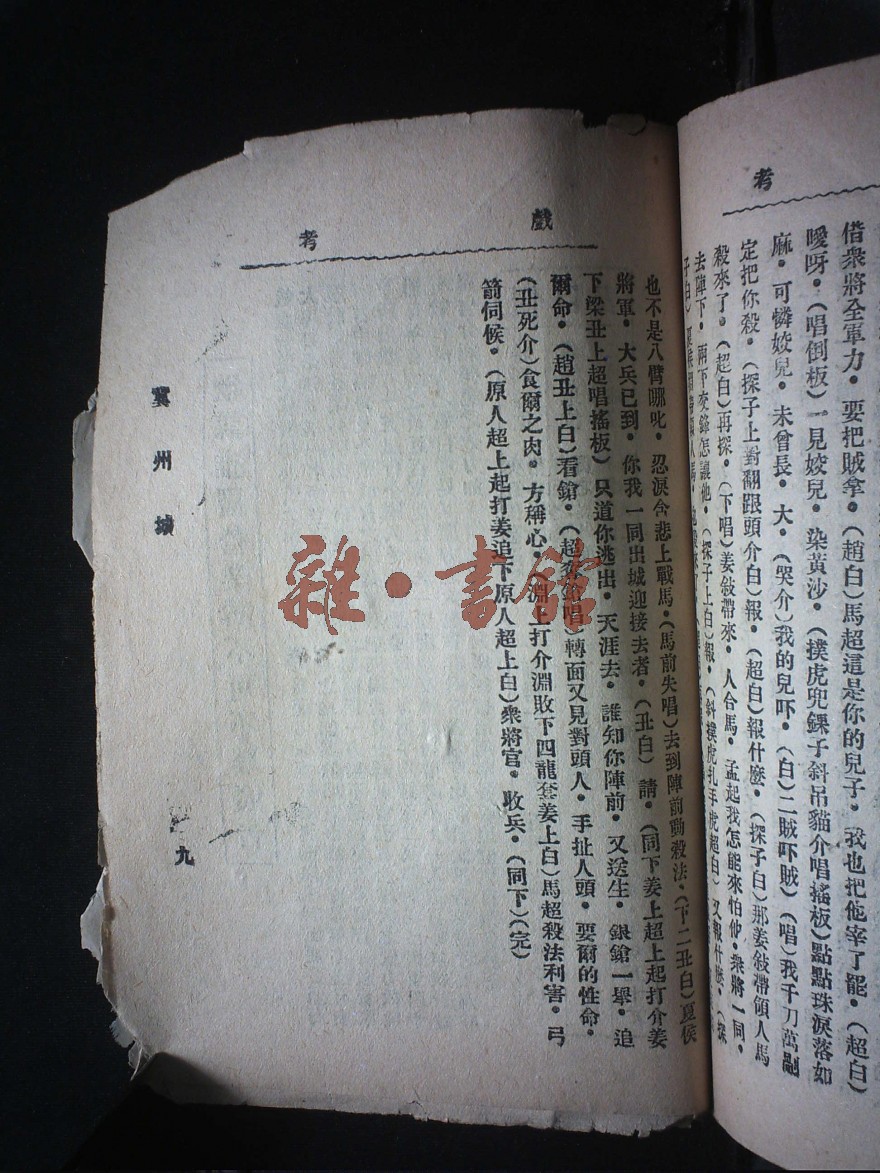 考
借衆將全軍力．要把賊拿．（趙白）馬超這是你的兒子．我也把他宰了罷．（超白）
噯呀．（唱倒板）一見姣兒．染黃沙．（撲虎兜錁子斜吊貓介唱搖板）點點珠淚落如
麻．可憐姣兒．未曾長．大．（哭介）我的兒吓．（白）二賊吓賊）（唱）我千刀萬剮
定把你殺．（探子上對翻跟頭介白）報．（超白）報什麼．（探子白）那姜敍帶領人馬
殺來了．（超白）再探．（下唱）姜敍帶來．人合馬．孟起我怎能來怕他．衆將一同．
去陣下．兩下交鋒怎讓他．（探子上白）報．（斜撲虎扎手 超白）又報什麽．（探
子白）夏侯淵帶領人馬．
戲考
也不是八臂哪叱．忍淚含悲上戰馬．（馬前失唱）去到陣前動殺法．（下二丑白）夏侯
將軍．大兵已到．你我一同出城迎接去者．（丑白）請．（同下姜上超上起打介姜
下梁丑上超唱搖板）只道你逃出．天涯去．誰知你陣前．又送生．銀鎗一舉．追
爾命．（趙丑上白）看鎗．（超奪鎗唱）轉面又見對頭人．手扯人頭．要爾的性命．
（丑死介）食爾之肉．方稱心．（淵上打介淵敗下四龍套姜上白）馬超殺法利害．弓
箭伺候．（原人超上起打姜追下原人超上白）衆將官．收兵．（同下）（完）
冀州城
九
雜·書館